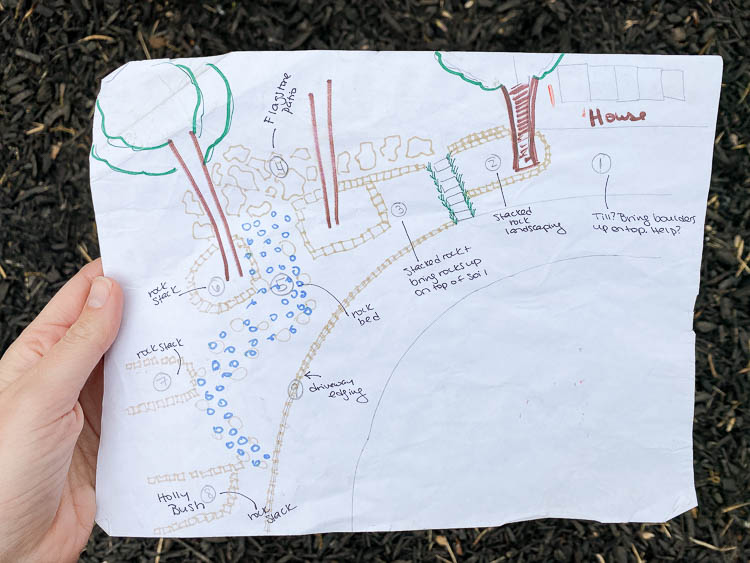 Flagstone
patio
④
House
②
①
Stacked
rock
landscaping
Till? Bring boulders
up on top. Help?
③
Stacked rock +
bring rocks up
on top of soil
rock
stack
⑥
⑤
rock
bed
rock stack
⑦
⑨
driveway
edging
Holly
Bush
⑧
rock
stack